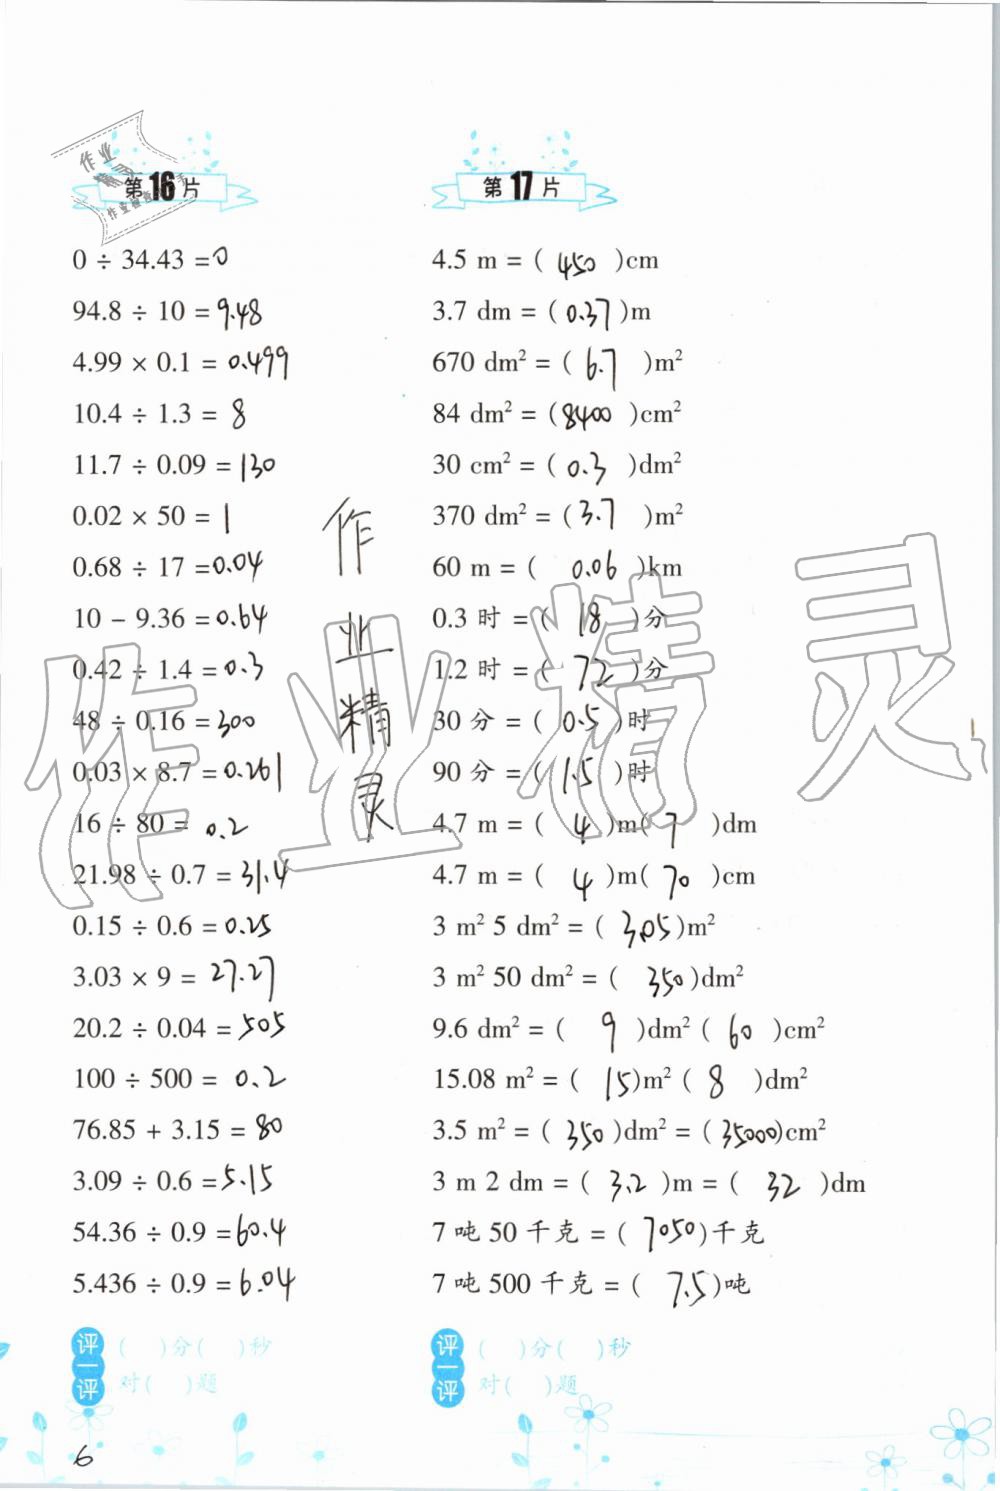 第16片
0 ÷ 34.43 = 0
94.8 ÷ 10 = 9.48
4.99 × 0.1 = 0.499
10.4 ÷ 1.3 = 8
11.7 ÷ 0.09 = 130
0.02 × 50 = 1
0.68 ÷ 17 = 0.04
10 − 9.36 = 0.64
0.42 ÷ 1.4 = 0.3
48 ÷ 0.16 = 300
0.03 × 8.7 = 0.261
16 ÷ 80 = 0.2
21.98 ÷ 0.7 = 31.4
0.15 ÷ 0.6 = 0.25
3.03 × 9 = 27.27
20.2 ÷ 0.04 = 505
100 ÷ 500 = 0.2
76.85 + 3.15 = 80
3.09 ÷ 0.6 = 5.15
54.36 ÷ 0.9 = 60.4
5.436 ÷ 0.9 = 6.04
评一评
( )分( )秒
对( )题
第17片
4.5 m = ( 450 )cm
3.7 dm = ( 0.37 )m
670 dm² = ( 6.7 )m²
84 dm² = ( 8400 )cm²
30 cm² = ( 0.3 )dm²
370 dm² = ( 3.7 )m²
60 m = ( 0.06 )km
0.3 时 = ( 18 )分
1.2 时 = ( 72 )分
30 分 = ( 0.5 )时
90 分 = ( 1.5 )时
4.7 m = ( 4 )m( 7 )dm
4.7 m = ( 4 )m( 70 )cm
3 m² 5 dm² = ( 3.05 )m²
3 m² 50 dm² = ( 350 )dm²
9.6 dm² = ( 9 )dm² ( 60 )cm²
15.08 m² = ( 15 )m² ( 8 )dm²
3.5 m² = ( 350 )dm² = ( 35000 )cm²
3 m 2 dm = ( 3.2 )m = ( 32 )dm
7 吨 50 千克 = ( 7050 )千克
7 吨 500 千克 = ( 7.5 )吨
评一评
( )分( )秒
对( )题
作业精灵
作业精灵
作业
6